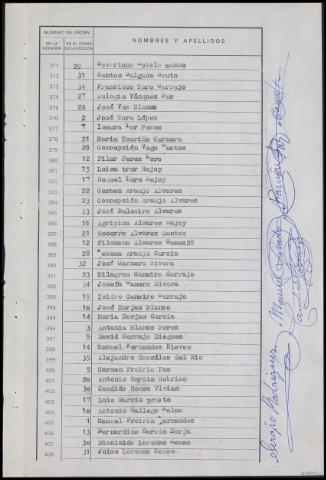 NUMERO DE ORDEN
EN LA VOTACION
NOMBRES Y APELLIDOS
371 29 Severiano Sotelo
372 31 Santos Salgado Souto
373 34 Francisco Toro Carrajo
374 27 Eulogia Vázquez Paz
375 24 José Vaz Blanco
376 2 José Toro López
377 7 Isaura Por Pazos
378 21 María Touriño Carnero
379 29 Concepción Vega Santos
380 12 Pilar Perez Toro
381 15 Luisa Rajoy
382 17 Raquel Toro Rajoy
383 22 Carmen Araujo Alvarez
384 23 Concepción Araujo Alvarez
385 33 José Baloeiro Alvarez
386 16 Agripina Alvarez Rajoy
387 21 Socorro Alvarez Santos
388 12 Filomena Alvarez
389 28 Araujo García
390 32 José Carnero Rivera
391 23 Milagros Caneiro Carrajo
392 34 Josefa Rivera
393 19 Isidro Caneiro
394 10 José Borjas Blanco
395 14 María Borjas García
396 3 Antonio Blanco Perez
397 9 David Carrajo Dieguez
398 14 Manuel Fernandez Nieves
399 35 Alejandro González del Rio
400 5 Carmen Freiria Paz
401 20 Antonio García Sobrino
402 30 Candido Gomez Vivian
403 17 Luis García
404 10 Antonio Gallego
405 1 Manuel Freiria Fernandez
406 13 Bernardino García Borja
407 30 Dionisido Lorenzo
408 31 Jaime Lorenzo
Sergio Rodriguez